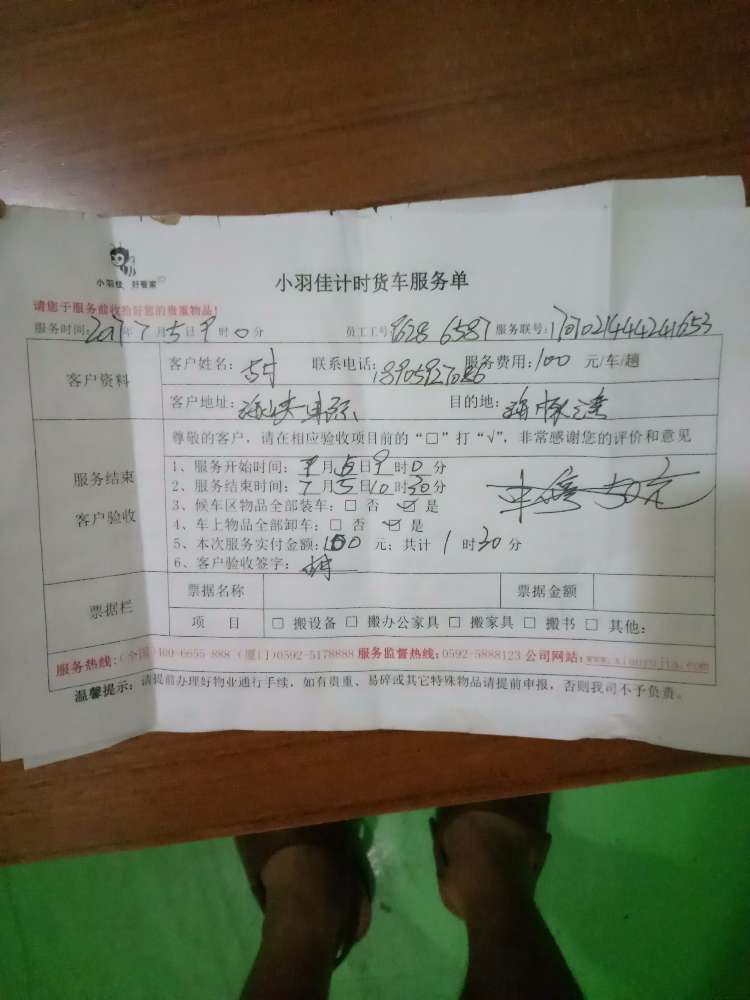 小羽佳 好管家
小羽佳计时货车服务单
请您于服务前收拾好您的贵重物品!
服务时间:2017年7月5日9时0分 员工工号 8628 6587 服务联号:1707021444241653
客户资料
客户姓名: 联系电话: 服务费用:100 元/车/趟
客户地址:海峡国际 目的地:
服务结束
客户验收
尊敬的客户，请在相应验收项目前的“□”打“√”，非常感谢您的评价和意见
1、服务开始时间:7月5日9时0分
2、服务结束时间:7月5日10时30分
3、候车区物品全部装车:□ 否 ☑ 是
4、车上物品全部卸车:□ 否 ☑ 是
50元
5、本次服务实付金额:100 元;共计 1 时30分
6、客户验收签字:
票据栏
票据名称 票据金额
项 目 □ 搬设备 □ 搬办公家具 □ 搬家具 □ 搬书 □ 其他:
服务热线:(全国)400-6655-888 (厦门)0592-5178888 服务监督热线:0592-5888123 公司网站:www.xiaoyujia.com
温馨提示:请提前办理好物业通行手续，如有贵重、易碎或其它特殊物品请提前申报，否则我司不予负责。